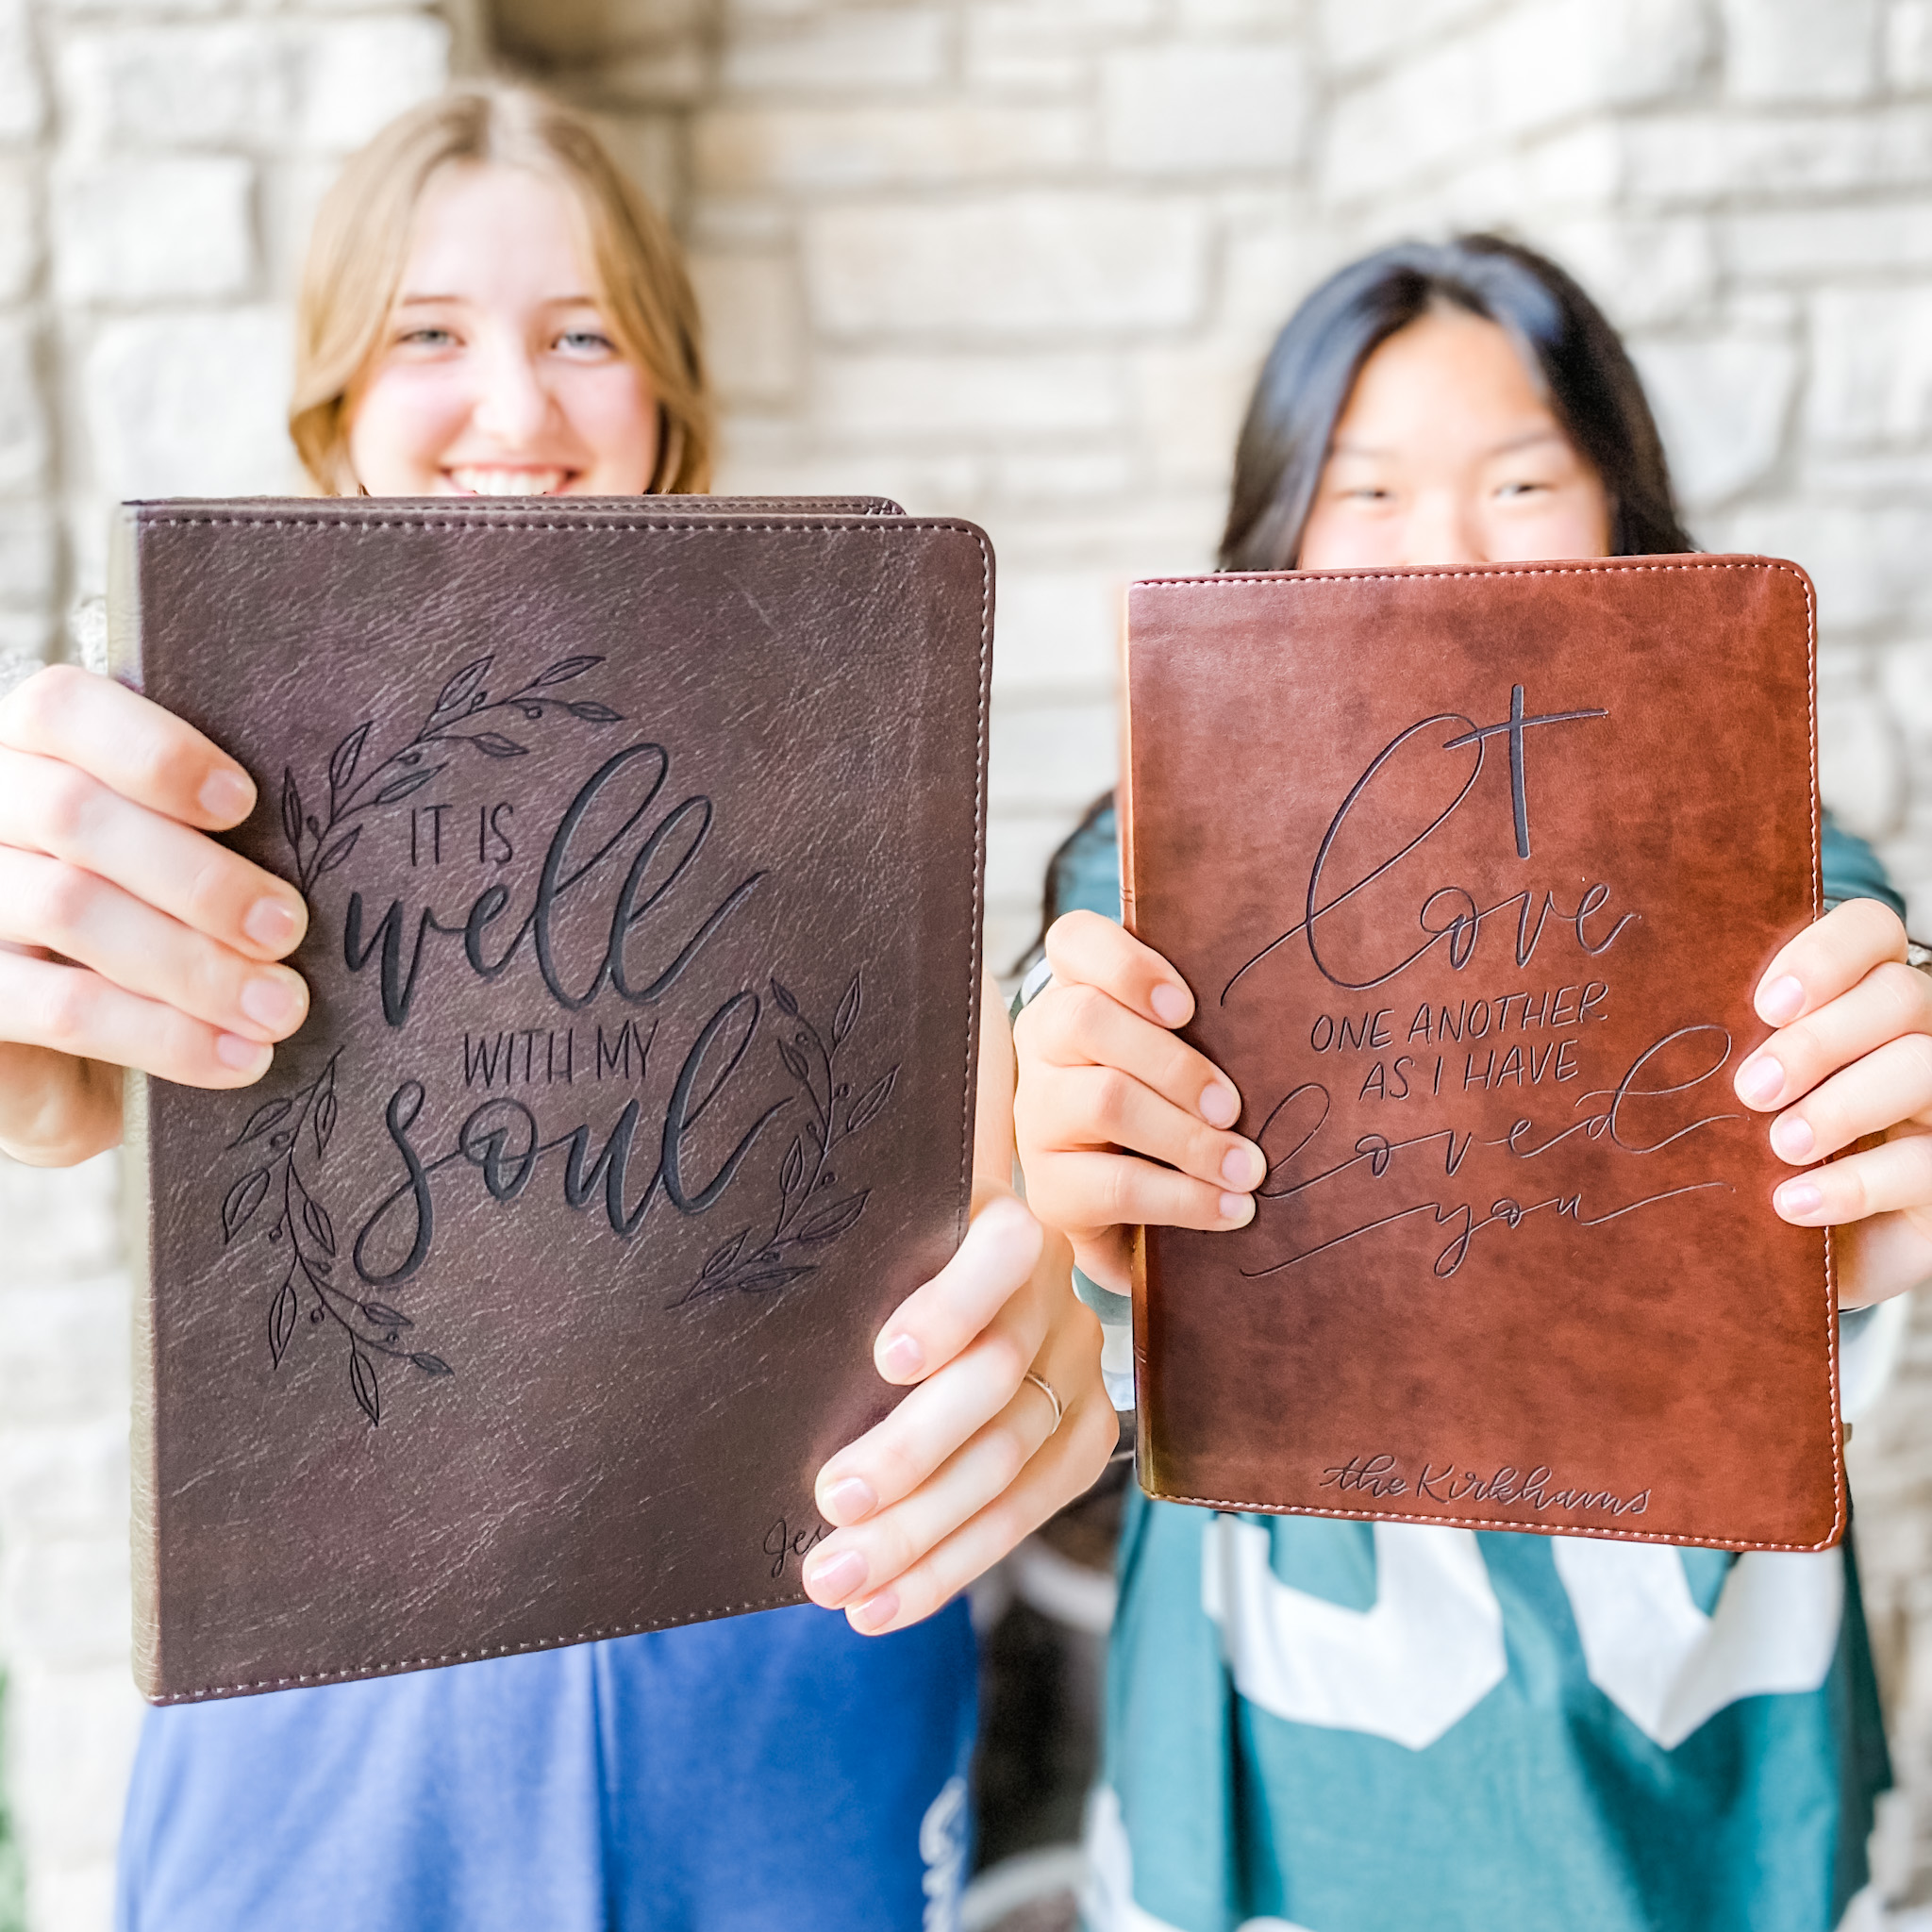 IT IS
well
WITH MY
soul
love
ONE ANOTHER
AS I HAVE
loved
you
the Kirkhams